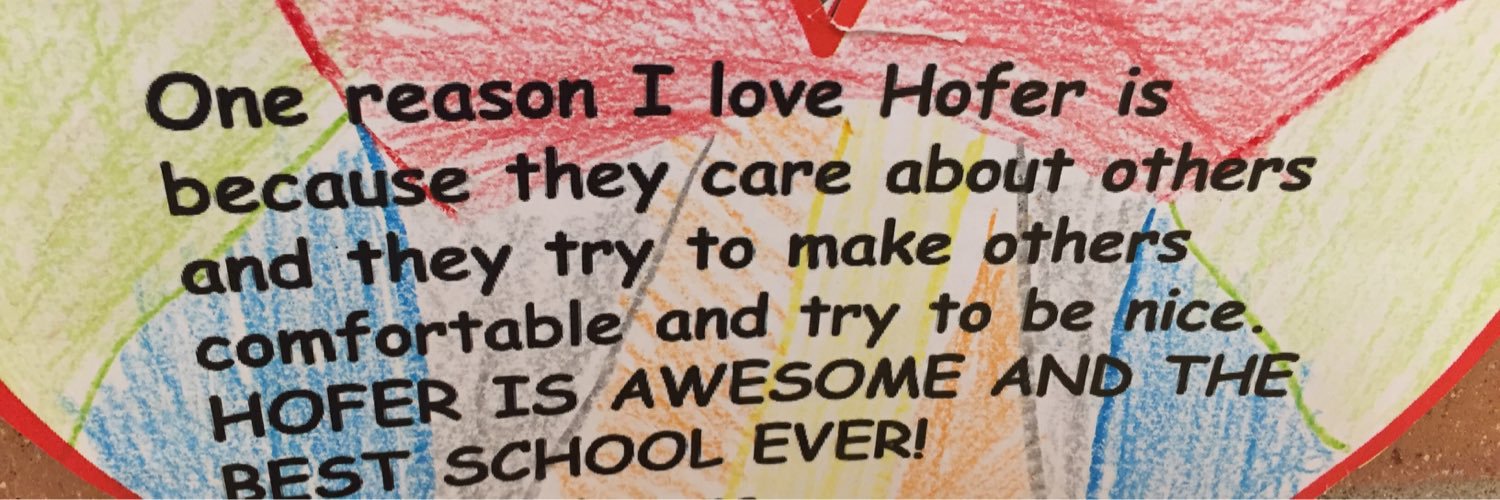 One reason I love Hofer is
because they care about others
and they try to make others
comfortable and try to be nice.
HOFER IS AWESOME AND THE
BEST SCHOOL EVER!